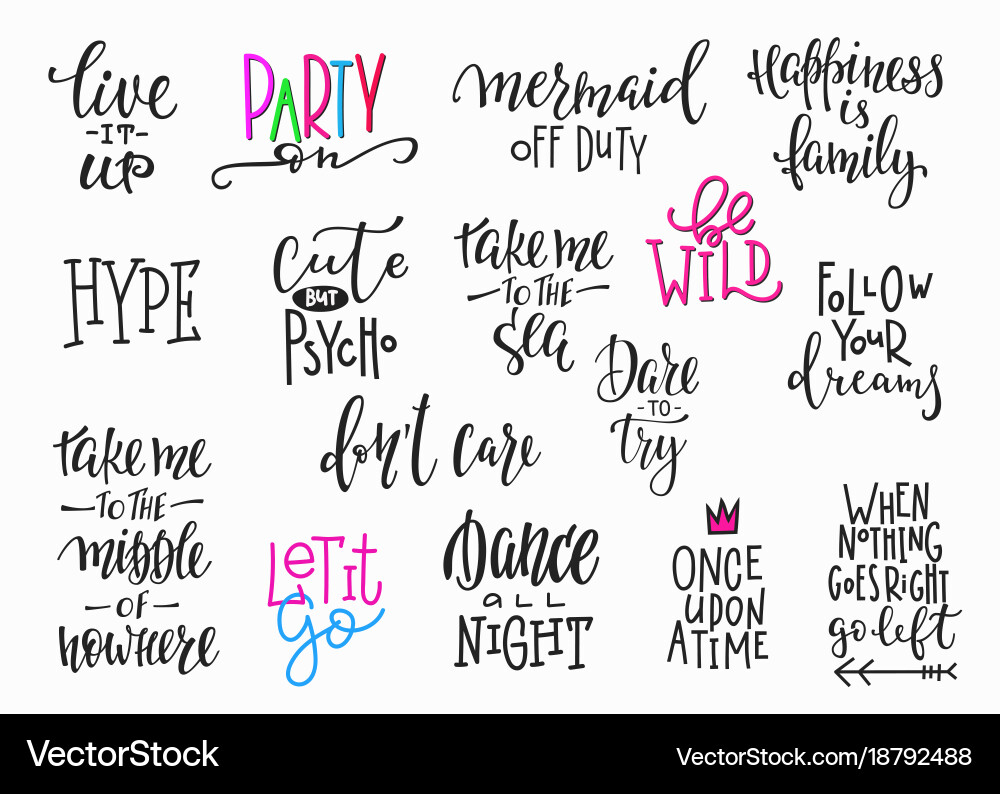 live
-IT-
up
PARTY
on
mermaid
OFF DUTY
Happiness
is
family
HYPE
Cute
BUT
PSYCHO
take me
—TO THE—
sea
be
WILD
FOLLOW
YOUR
dreams
Dare
-TO-
try
don't care
take me
—TO THE—
middle
—OF—
nowhere
LET it
go
Dance
ALL
NIGHT
ONCE
UPON
A TIME
WHEN
NOTHING
GOES RIGHT
go left
VectorStock
VectorStock.com/18792488